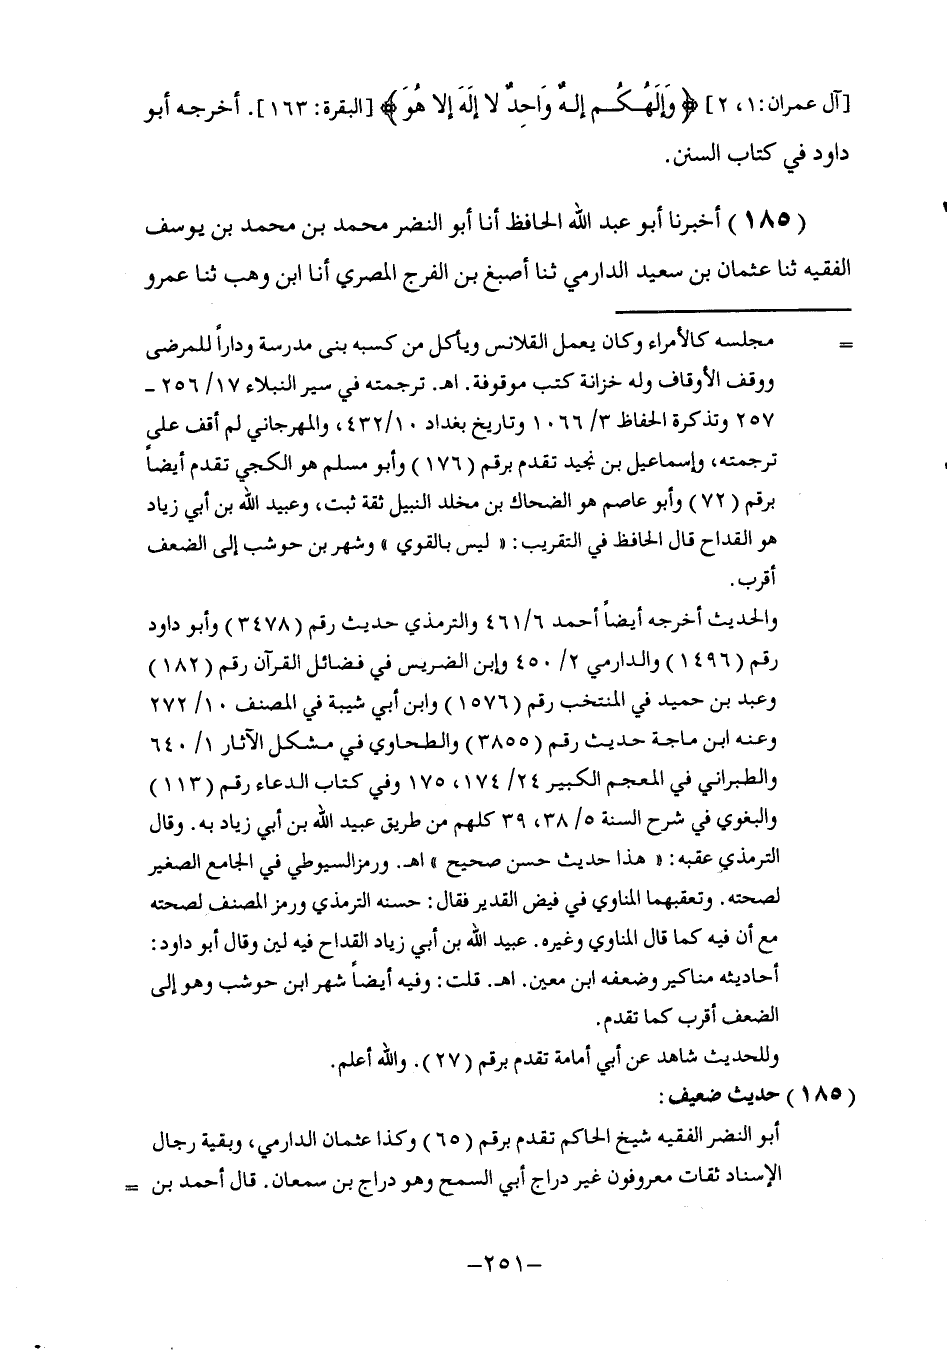 [آل عمران:١، ٢] ﴿ وَإِلَهُكُم إلهٌ وَاحِدٌ لا إلَهَ إلا هُوَ ﴾ [البقرة: ١٦٣]. أخرجه أبو
داود في كتاب السنن.
(١٨٥) أخبرنا أبو عبد الله الحافظ أنا أبو النضر محمد بن محمد بن يوسف
الفقيه ثنا عثمان بن سعيد الدارمي ثنا أصبغ بن الفرج المصري أنا ابن وهب ثنا عمرو
= مجلسه كالأمراء وكان يعمل القلانس ويأكل من كسبه بنى مدرسة وداراً للمرضى
ووقف الأوقاف وله خزانة كتب موقوفة. اهـ. ترجمته في سير النبلاء ١٧/ ٢٥٦ ــ
٢٥٧ وتذكرة الحفاظ ٣/ ١٠٦٦ وتاريخ بغداد ١٠/ ٤٣٢، والمهرجاني لم أقف على
ترجمته، وإسماعيل بن نجيد تقدم برقم (١٧٦) وأبو مسلم هو الكجي تقدم أيضاً
برقم (٧٢) وأبو عاصم هو الضحاك بن مخلد النبيل ثقة ثبت، وعبيد الله بن أبي زياد
هو القداح قال الحافظ في التقريب: « ليس بالقوي » وشهر بن حوشب إلى الضعف
أقرب.
والحديث أخرجه أيضاً أحمد ٦/ ٤٦١ والترمذي حديث رقم (٣٤٧٨) وأبو داود
رقم (١٤٩٦) والدارمي ٢/ ٤٥٠ وإبن الضريس في فضائل القرآن رقم (١٨٢)
وعبد بن حميد في المنتخب رقم (١٥٧٦) وابن أبي شيبة في المصنف ١٠/ ٢٧٢
وعنه ابن ماجة حديث رقم (٣٨٥٥) والطحاوي في مشكل الآثار ١/ ٦٤٠
والطبراني في المعجم الكبير ٢٤/ ١٧٤، ١٧٥ وفي كتاب الدعاء رقم (١١٣)
والبغوي في شرح السنة ٥/ ٣٨، ٣٩ كلهم من طريق عبيد الله بن أبي زياد به. وقال
الترمذي عقبه: « هذا حديث حسن صحيح » اهـ. ورمزالسيوطي في الجامع الصغير
لصحته. وتعقبهما المناوي في فيض القدير فقال: حسنه الترمذي ورمز المصنف لصحته
مع أن فيه كما قال المناوي وغيره. عبيد الله بن أبي زياد القداح فيه لين وقال أبو داود:
أحاديثه مناكير وضعفه ابن معين. اهـ. قلت: وفيه أيضاً شهر ابن حوشب وهو إلى
الضعف أقرب كما تقدم.
وللحديث شاهد عن أبي أمامة تقدم برقم (٢٧). والله أعلم.
(١٨٥) حديث ضعيف:
أبو النضر الفقيه شيخ الحاكم تقدم برقم (٦٥) وكذا عثمان الدارمي، وبقية رجال
الإسناد ثقات معروفون غير دراج أبي السمح وهو دراج بن سمعان. قال أحمد بن =
-٢٥١-